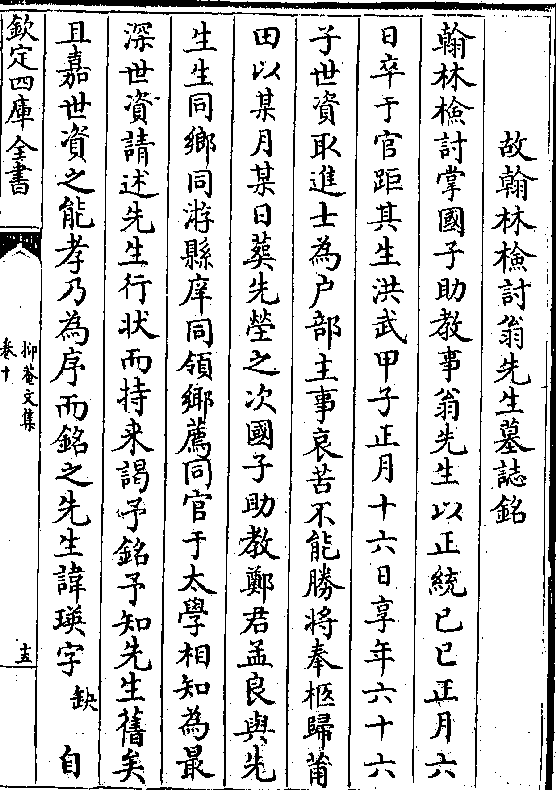 故翰林檢討翁先生墓誌銘
翰林檢討掌國子助教事翁先生以正統己巳正月六
日卒于官距其生洪武甲子正月十六日享年六十六
子世資取進士為户部主事哀苦不能勝将奉柩歸莆
田以某月某日葬先塋之次國子助教鄭君孟良與先
生生同鄉同游縣庠同領鄉薦同官于太學相知為最
深世資請述先生行状而持来謁予銘予知先生舊矣
且嘉世資之能孝乃為序而銘之先生諱瑛字缺自
欽定四庫全書
抑菴文集
卷十
十五